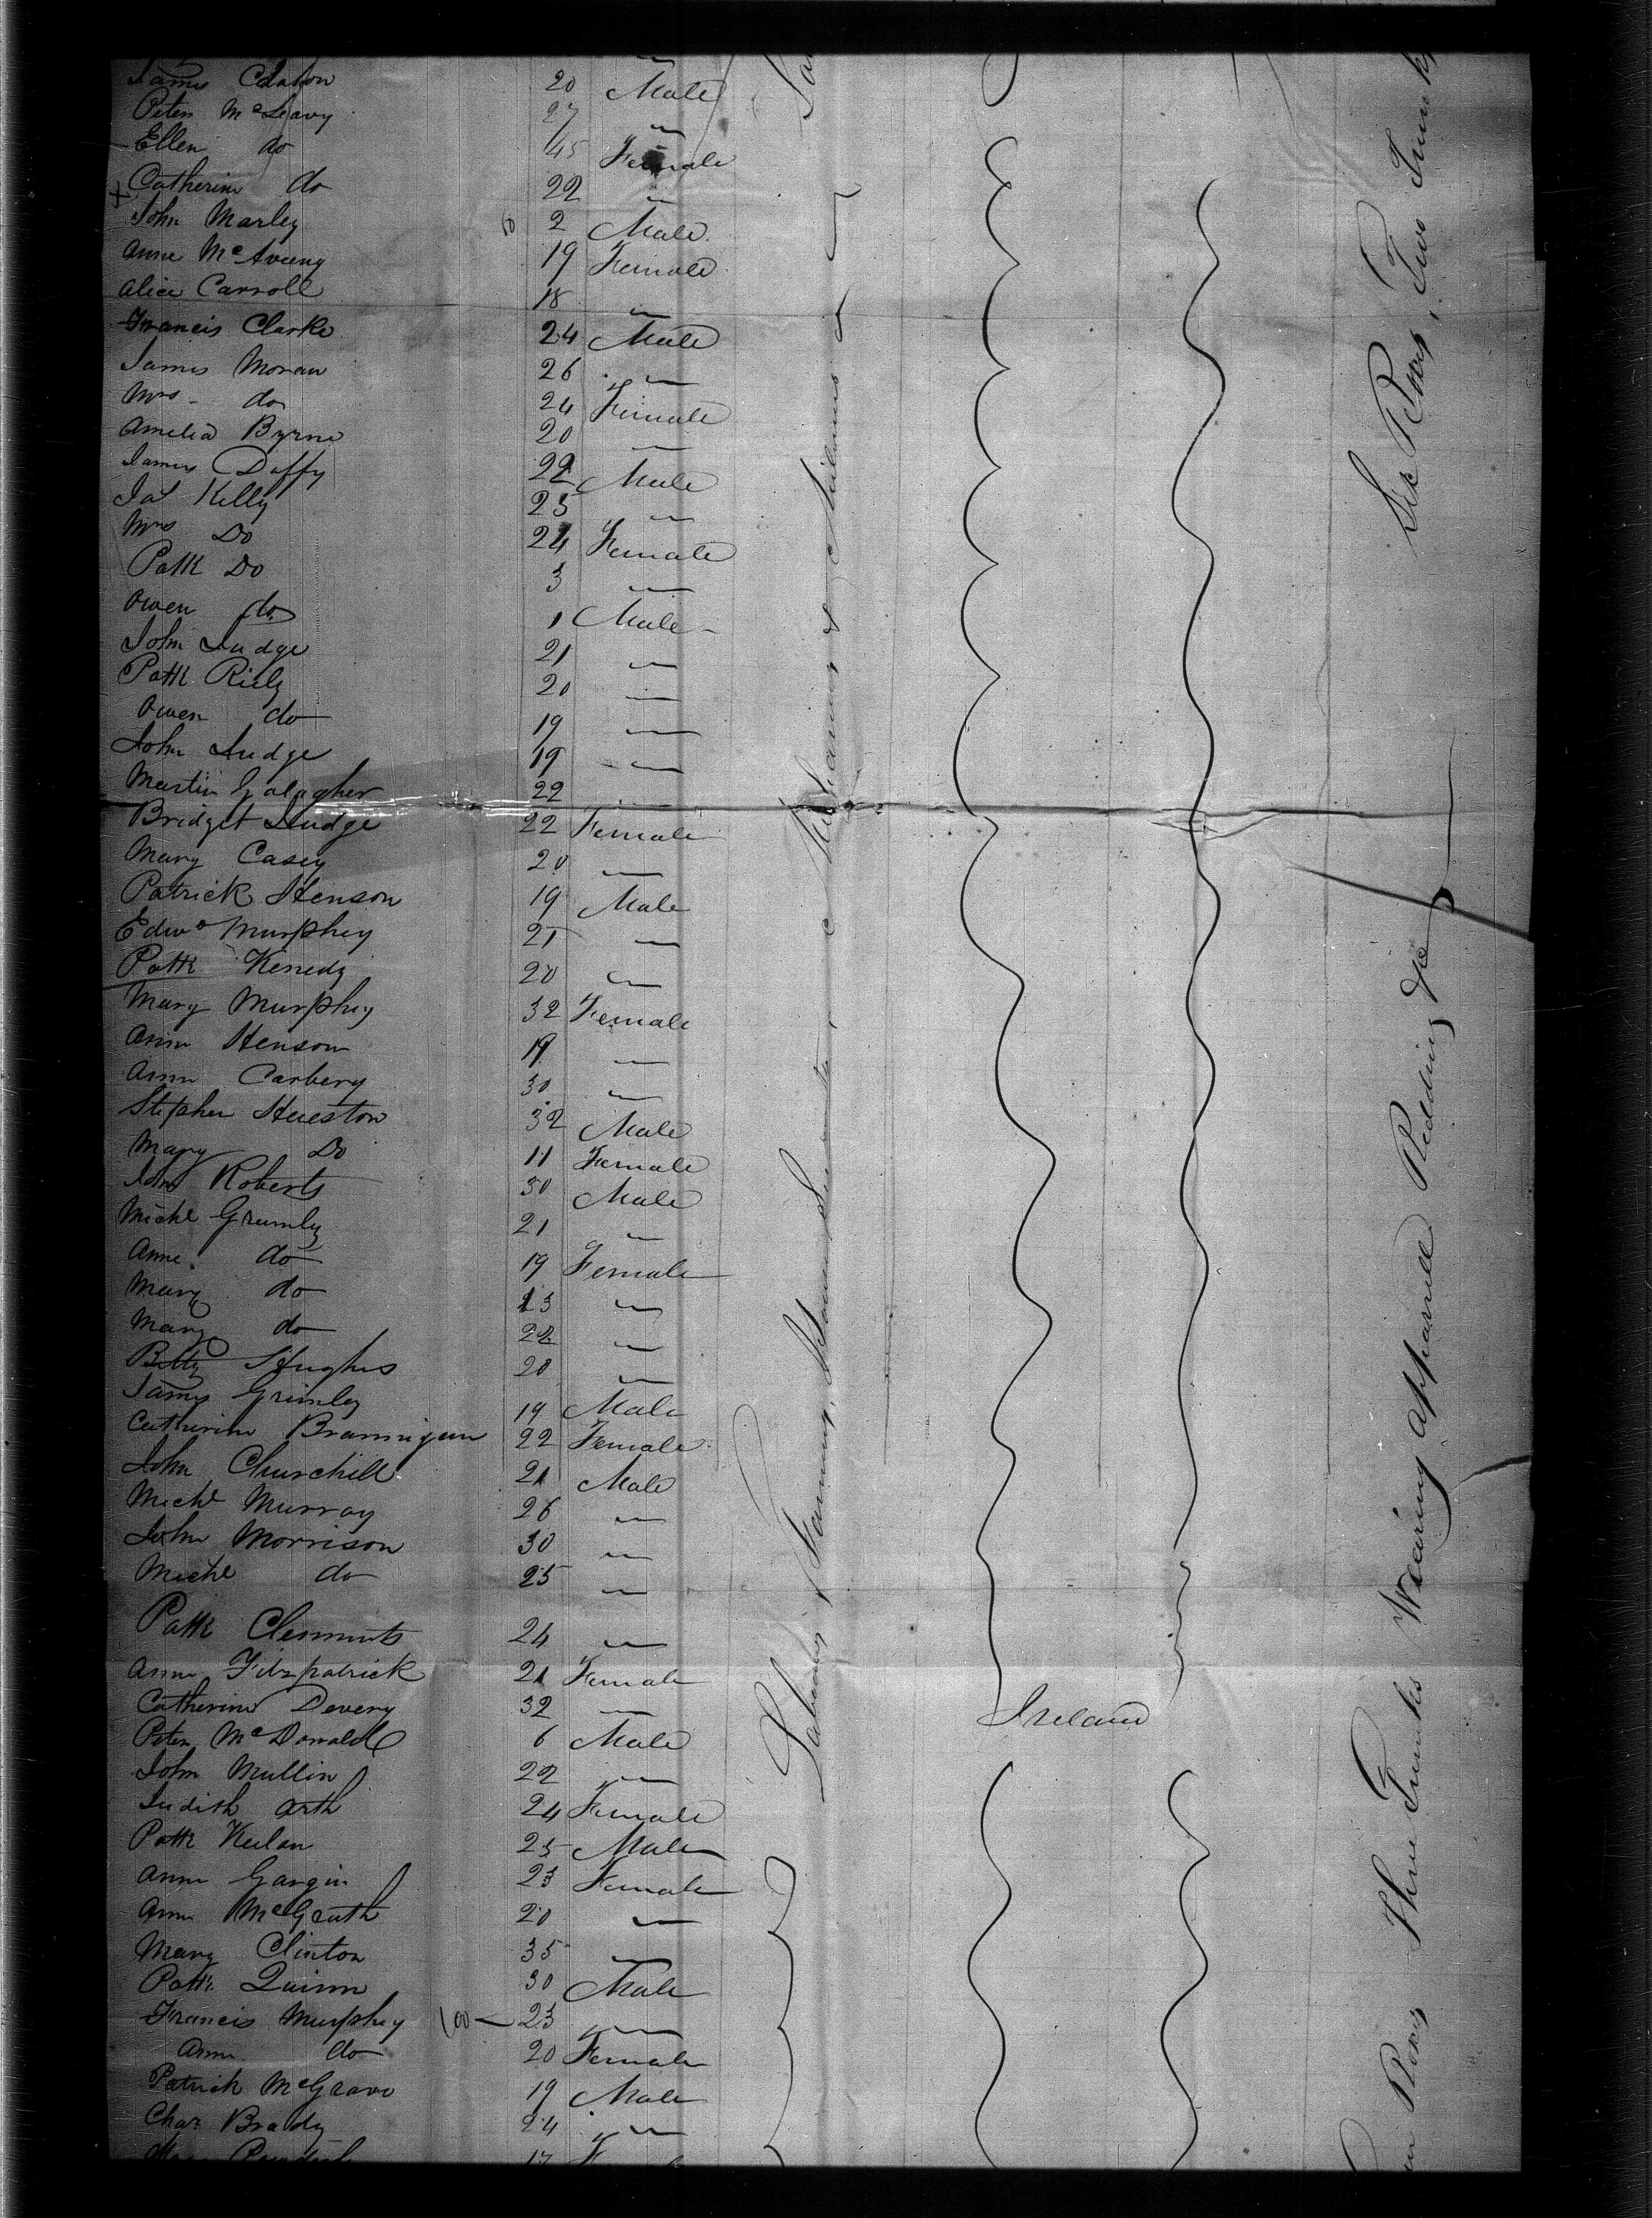 James 20 Male
Peter McLeavy 27 "
Ellen do 45 Female
Catherine do 22 "
John Marley 2 Male
Anne 19 Female
Alice Carroll 18 "
Francis Clarke 24 Male
James Moran 26 "
Mrs do 24 Female
Amelia Byrne 20 "
James Duffy 22 Male
Jas Kelly 25 "
Mrs Do 24 Female
Patk Do 3 "
Owen do 1 Male
John Judge 21 "
Patk Riely 20 "
Owen do 19 "
John Judge 19 "
Martin Galagher 22 "
Bridget Judge 22 Female
Mary Casey 20 "
Patrick Henson 19 Male
Edwd Murphey 21 "
Patk Kenedy 20 "
Mary Murphey 32 Female
Ann Henson 19 "
Ann Carbery 30 "
Stephen Hueston 32 Male
Mary Do 11 Female
John Roberts 30 Male
Michl Grumly 21 "
Anne do 19 Female
Mary do 23 "
Mary do 22 "
Betty Hughes 20 "
James Grimley 19 Male
Catherine Brannigan 22 Female
John Churchill 21 Male
Michl Murray 26 "
John Morrison 30 "
Michl do 25 "
Patk Clemments 24 "
Ann Fitzpatrick 21 Female
Catherine Devery 32 "
Peter McDonald 6 Male
John Mullin 22 "
Judith Arth 24 Female
Patk Keelan 25 Male
Anne Gargin 23 Female
Ann McGrath 20 "
Mary Clinton 35 "
Patk Quinn 30 Male
Francis Murphey 100 — 23 "
Ann do 20 Female
Patrick McGrave 19 Male
Chas Brady 24 "
17 F
Labouring, Farming, House Servants, Mechanics &
Ireland
Three Trunks Wearing Apparrell Bedding &c
Six Boxes, Two Trunks
Boxes